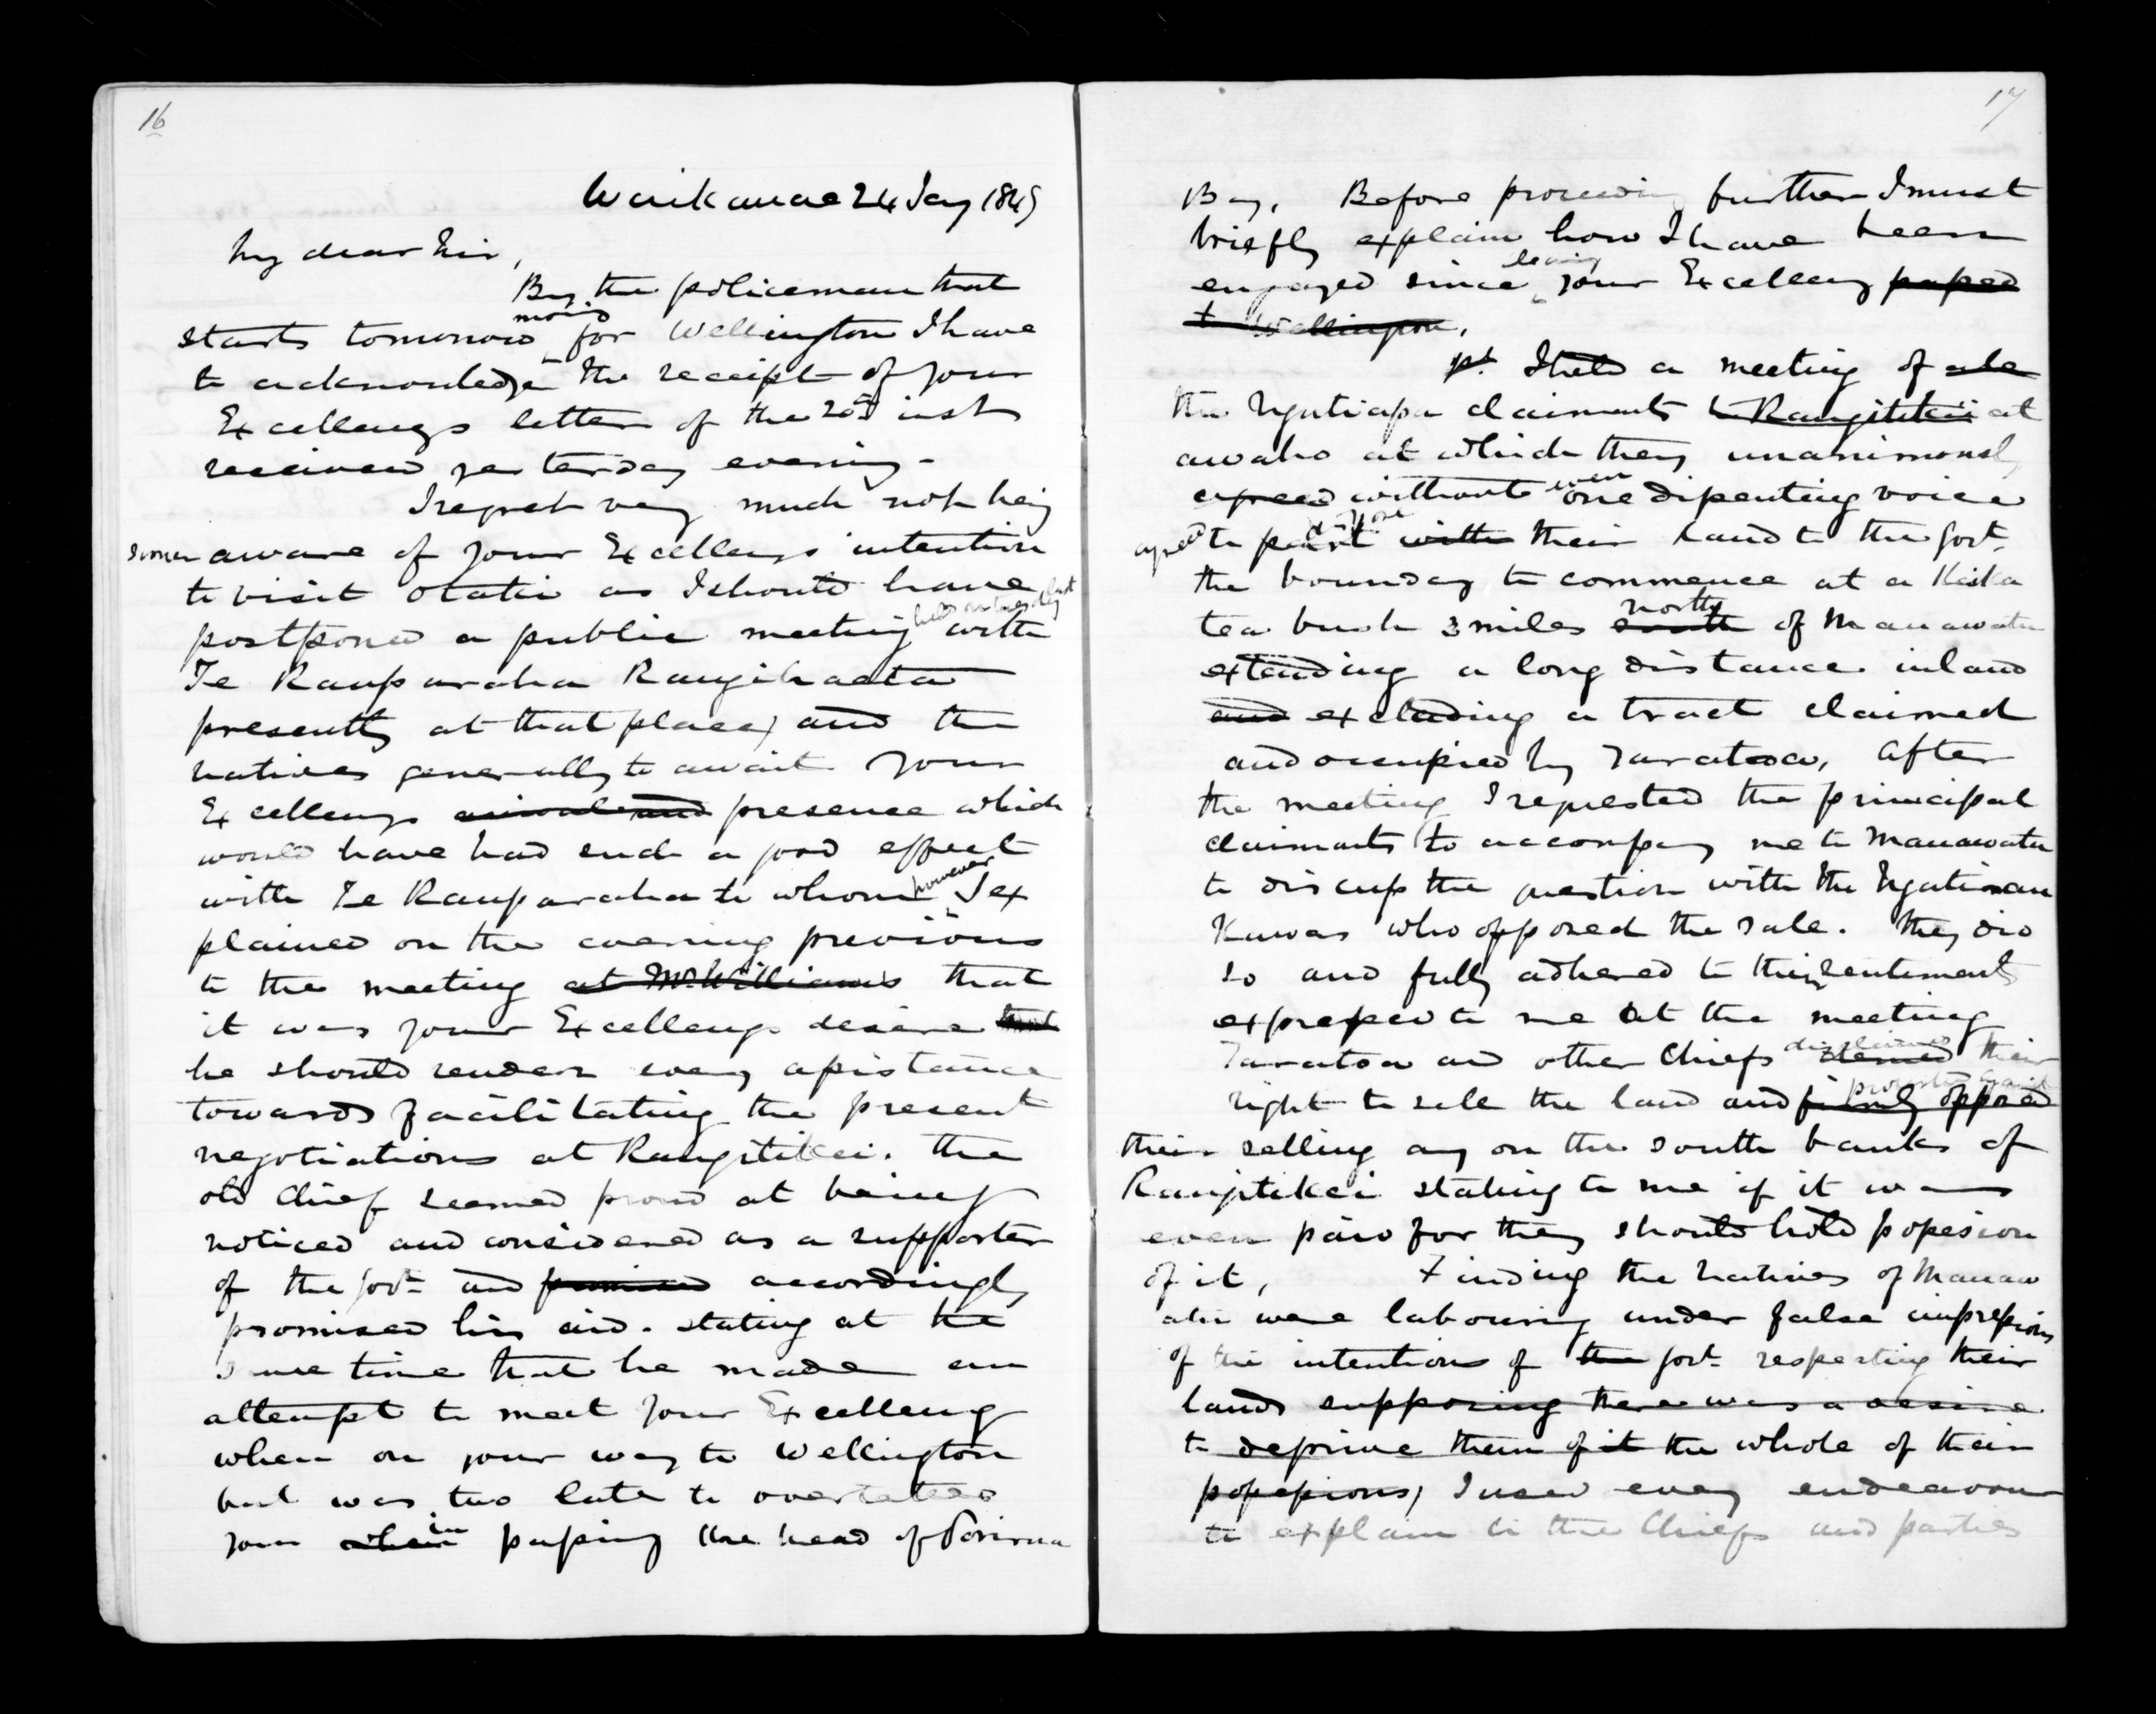 16
Waikanae 24 Jay 1849
My dear Sir,
By the policeman that
starts tomorrow morng for Wellington I have
to acknowledge the receipt of your
Excellencys letter of the 20th inst
received yesterday evening -
I regret very much not being
sooner aware of your Excellencys intention
to visit Otaki as I should have
postponed a public meeting held with
Te Rauparaha Rangihaeata
presently at that place, and the
natives generally to await your
Excellencys arrival and presence which
would have had such a good effect
with Te Rauparaha to whom however I ex
plained on the evening previous
to the meeting at Mr. Williams's that
it was your Excellencys desire that
he should render every assistance
towards facilitating the present
negotiations at Rangitikei. the
old Chief seemed proud at being
noticed and considered as a supporter
of the Govt and promised accordingly
promised his aid. stating at the
same time that he made an
attempt to meet your Excellency
when on your way to Wellington
but was too late to overtake
you when in passing the head of Porirua
17
Bay. Before proceeding further I must
briefly explain how I have been
engaged since leaving your Excellency passed
to Wellington.
1st. I held a meeting of
the Ngatiapa claimants to Rangitikei at
awaho at which they unanimously
agreed without even one dissenting voice
agreed to part dispose with their land to the Govt.
the boundary to commence at a Kaika
tea bush 3 miles south north of Manawatu
extending a long distance inland
and excluding a tract claimed
and occupied by Taratoa, After
the meeting I requested the principal
claimants to accompany me to Manawatu
to discuss the question with the Ngatirau
Kawas who opposed the sale. they did
so and fully adhered to their sentiments
expressed to me at the meeting
Taratoa and other Chiefs disclaimed denied their
right to sell the land and protested against firmly opposed
their selling any on the south banks of
Rangitikei stating to me if it was
even paid for they should hold possession
of it, Finding the natives of Manaw
atu were labouring under false impressions
of the intentions of the Govt. respecting their
lands supposing there was a desire
to deprive them of it the whole of their
possessions, I used every endeavour
to explain to the Chiefs and parties